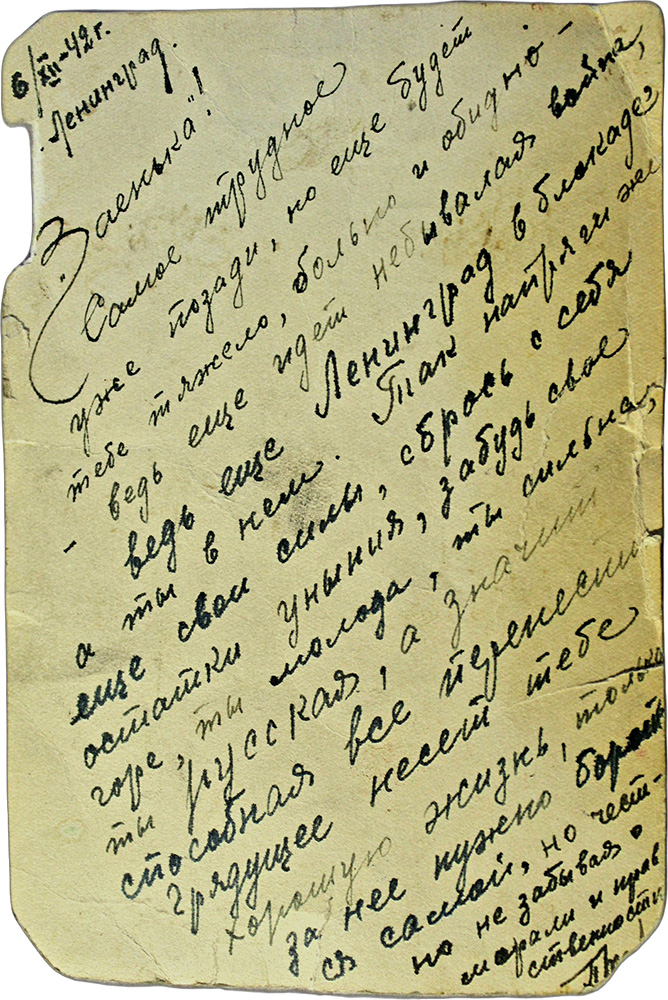 6/XII-42г.
Ленинград.
Заенька"!
Самое трудное
уже позади, но еще будет
тебе тяжело, больно и обидно -
- ведь еще идет небывалая война,
ведь еще Ленинград в блокаде
а ты в нем. Так напряги же
еще свои силы, сбрось с себя
остатки уныния, забудь свое
горе, ты молода, ты сильная,
ты русская, а значит
способная все перенести
Грядущее несет тебе
хорошую жизнь, только
за нее нужно бороть
ся самой, но чест-
но не забывая о
морали и нрав
ственности